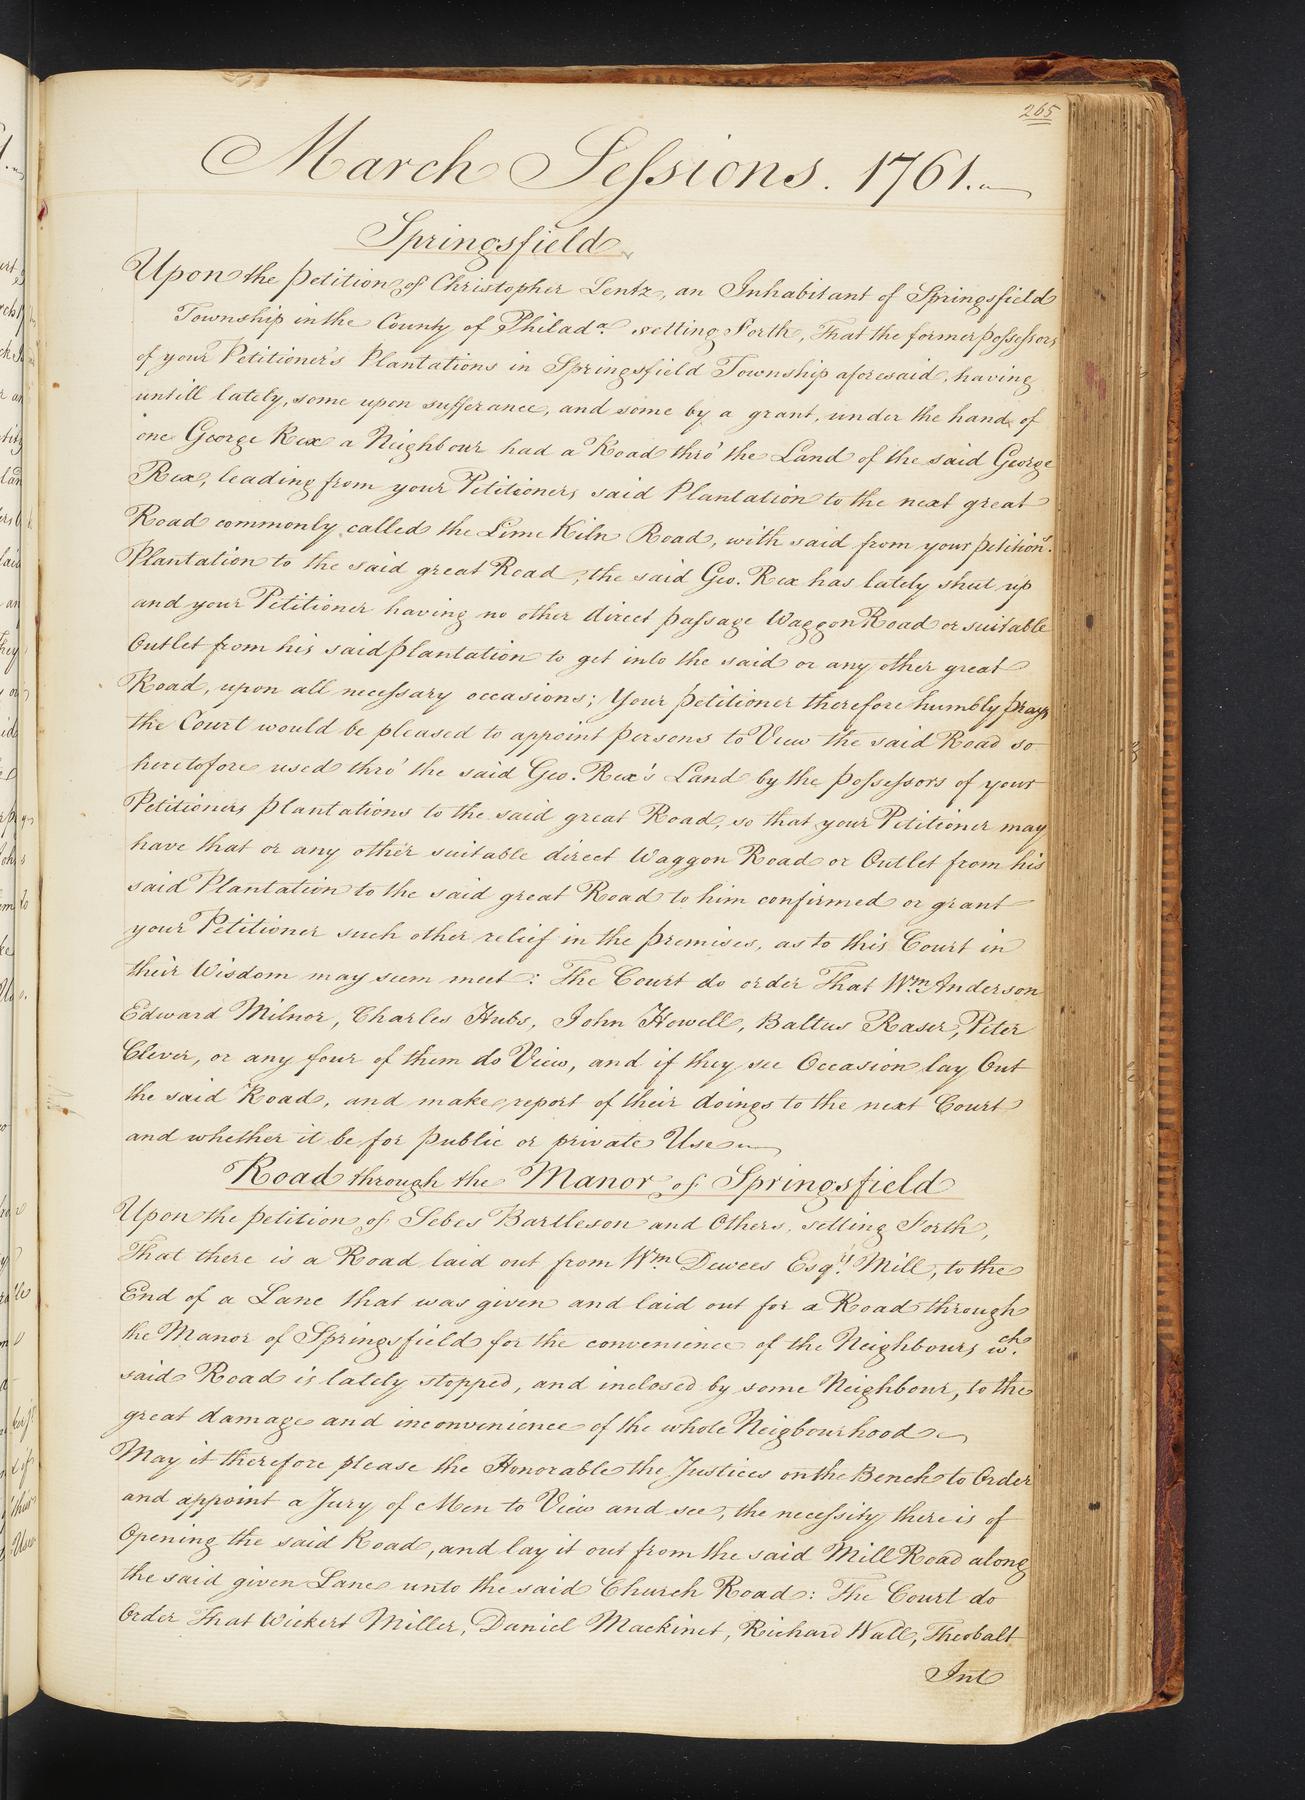 265
March Sessions. 1761.
Springsfield
Upon the petition of Christopher Lentz, an Inhabitant of Springsfield
Township in the County of Philada. setting Forth, That the former possessors
of your Petitioner's Plantations in Springsfield Township aforesaid, having
untill lately, some upon sufferance, and some by a grant, under the hand of
one George Rex a Neighbour had a Road thro' the Land of the said George
Rex, leading from your Petitioners said Plantation to the next great
Road commonly called the Lime Kiln Road, with said from your petitionrs.
Plantation to the said great Road, the said Geo. Rex has lately shut up
and your Petitioner having no other direct passage Waggon Road or suitable
Outlet from his said plantation to get into the said or any other great
Road, upon all necessary occasions; Your petitioner therefore humbly prays
the Court would be pleased to appoint persons to View the said Road so
heretofore used thro' the said Geo. Rex's Land by the possessors of your
Petitioners plantations to the said great Road, so that your Petitioner may
have that or any other suitable direct Waggon Road or Outlet from his
said Plantation to the said great Road to him confirmed or grant
your Petitioner such other relief in the premises, as to this Court in
their Wisdom may seem meet: The Court do order That Wm. Anderson
Edward Milnor, Charles Hubs, John Howell, Baltus Raser, Peter
Clever, or any four of them do View, and if they see Occasion lay Out
the said Road, and make report of their doings to the next Court
and whether it be for public or private Use
Road through the Manor of Springsfield
Upon the petition of Sebes Bartleson and Others, setting Forth,
That there is a Road laid out from Wm. Dewees Esqrs. Mill, to the
End of a Lane that was given and laid out for a Road through
the Manor of Springsfield for the convenience of the Neighbours wch.
said Road is lately stopped, and inclosed by some Neighbour, to the
great damage and inconvenience of the whole Neigbourhood
May it therefore please the Honorable the Justices on the Bench to Order
and appoint a Jury of Men to View and see, the necessity there is of
Opening the said Road, and lay it out from the said Mill Road along
the said given Lane unto the said Church Road: The Court do
Order That Wickert Miller, Daniel Mackinet, Richard Wall, Theobalt
Int